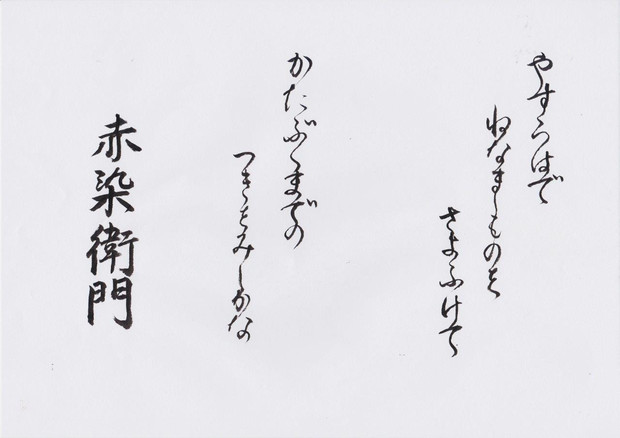 やすらはで
ねなましものを
さよふけて
かたぶくまでの
つきをみしかな
赤染衛門